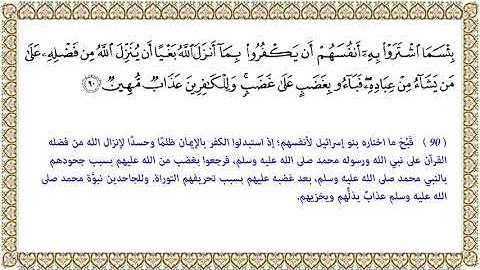 بِئْسَمَا ٱشْتَرَوْا۟ بِهِۦٓ أَنفُسَهُمْ أَن يَكْفُرُوا۟ بِمَآ أَنزَلَ ٱللَّهُ بَغْيًا أَن يُنَزِّلَ ٱللَّهُ مِن فَضْلِهِۦ عَلَىٰ
مَن يَشَآءُ مِنْ عِبَادِهِۦ ۖ فَبَآءُو بِغَضَبٍ عَلَىٰ غَضَبٍ ۚ وَلِلْكَٰفِرِينَ عَذَابٌ مُّهِينٌ ٩٠
( 90 ) قَبُحَ ما اختاره بنو إسرائيل لأنفسهم؛ إذ استبدلوا الكفر بالإيمان ظلمًا وحسدًا لإنزال الله من فضله
القرآن على نبي الله ورسوله محمد صلى الله عليه وسلم، فرجعوا بغضب من الله عليهم بسبب جحودهم
بالنبي محمد صلى الله عليه وسلم، بعد غضبه عليهم بسبب تحريفهم التوراة. وللجاحدين نبوَّة محمد صلى
الله عليه وسلم عذابٌ يذلُّهم ويخزيهم.